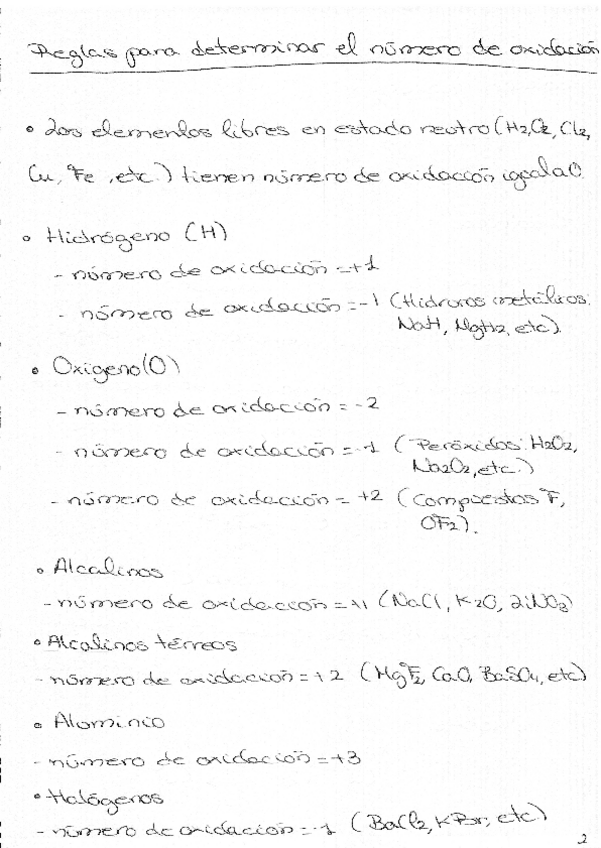 Reglas para determinar el número de oxidación
• Los elementos libres en estado neutro (H2, O2, Cl2,
Cu, Fe, etc.) tienen número de oxidación igual a 0.
• Hidrógeno (H)
- número de oxidación = +1
- número de oxidación = -1 (Hidruros metálicos:
NaH, MgH2, etc).
• Oxígeno (O)
- número de oxidación = -2
- número de oxidación = -1 (Peróxidos: H2O2,
Na2O2, etc.)
- número de oxidación = +2 (Compuestos F,
OF2).
• Alcalinos
- número de oxidación = +1 (NaCl, K2O, LiNO3)
• Alcalinos térreos
- número de oxidación = +2 (MgF2, CaO, BaSO4, etc)
• Aluminio
- número de oxidación = +3
• Halógenos
- número de oxidación = -1 (BaCl2, KBr, etc)
2